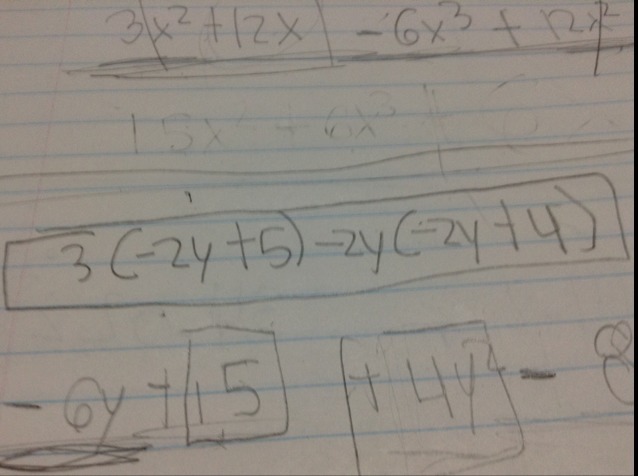 3x² + 12x - 6x³ + 12x²
3(-2y+5)-2y(-2y+4)
- 6y + 15 + 4y² - 8